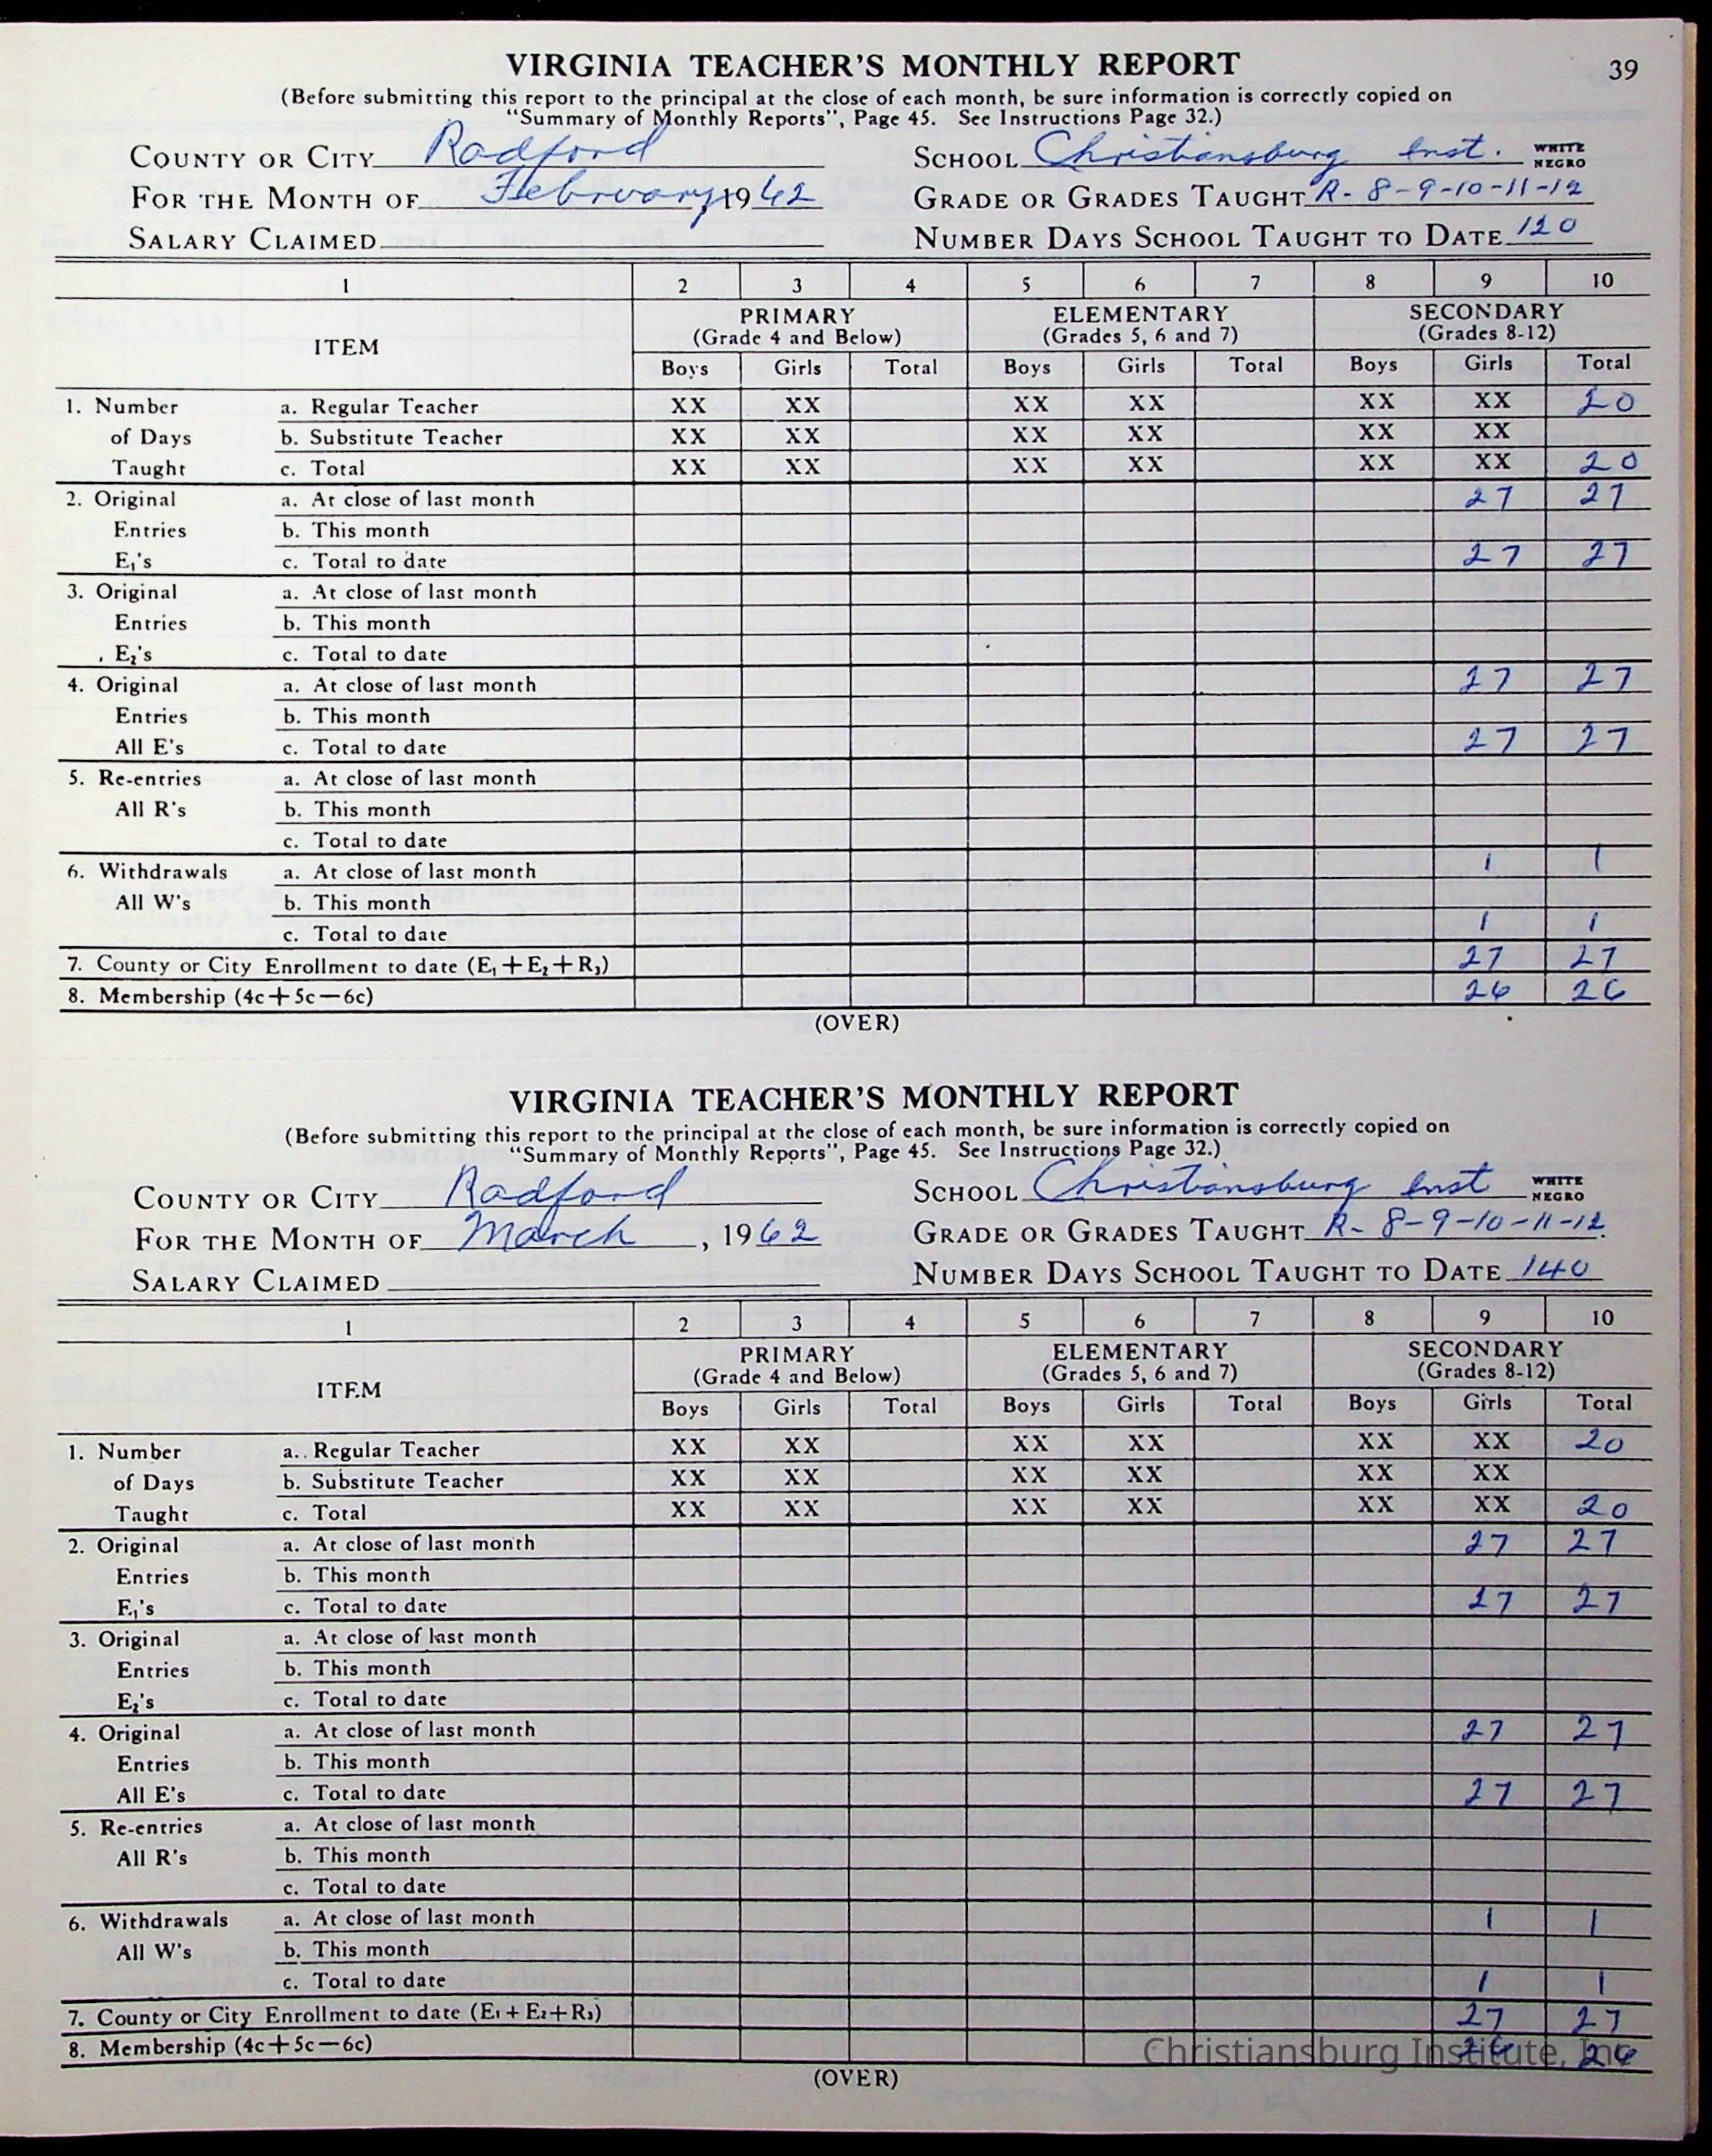 VIRGINIA TEACHER'S MONTHLY REPORT 39
(Before submitting this report to the principal at the close of each month, be sure information is correctly copied on
"Summary of Monthly Reports", Page 45. See Instructions Page 32.)
COUNTY OR CITY Radford SCHOOL Christiansburg Inst. WHITE NEGRO
FOR THE MONTH OF February, 1962 GRADE OR GRADES TAUGHT R- 8-9-10-11-12
SALARY CLAIMED NUMBER DAYS SCHOOL TAUGHT TO DATE 120
1 2 3 4 5 6 7 8 9 10
PRIMARY ELEMENTARY SECONDARY
ITEM (Grade 4 and Below) (Grades 5, 6 and 7) (Grades 8-12)
Boys Girls Total Boys Girls Total Boys Girls Total
1. Number a. Regular Teacher XX XX XX XX XX XX 20
of Days b. Substitute Teacher XX XX XX XX XX XX
Taught c. Total XX XX XX XX XX XX 20
2. Original a. At close of last month 27 27
Entries b. This month
E₁'s c. Total to date 27 27
3. Original a. At close of last month
Entries b. This month
E₂'s c. Total to date
4. Original a. At close of last month 27 27
Entries b. This month
All E's c. Total to date 27 27
5. Re-entries a. At close of last month
All R's b. This month
c. Total to date
6. Withdrawals a. At close of last month 1 1
All W's b. This month
c. Total to date 1 1
7. County or City Enrollment to date (E₁+E₂+R₃) 27 27
8. Membership (4c+5c—6c) 26 26
(OVER)
VIRGINIA TEACHER'S MONTHLY REPORT
(Before submitting this report to the principal at the close of each month, be sure information is correctly copied on
"Summary of Monthly Reports", Page 45. See Instructions Page 32.)
COUNTY OR CITY Radford SCHOOL Christiansburg Inst WHITE NEGRO
FOR THE MONTH OF March, 1962 GRADE OR GRADES TAUGHT R- 8-9-10-11-12.
SALARY CLAIMED NUMBER DAYS SCHOOL TAUGHT TO DATE 140
1 2 3 4 5 6 7 8 9 10
PRIMARY ELEMENTARY SECONDARY
ITEM (Grade 4 and Below) (Grades 5, 6 and 7) (Grades 8-12)
Boys Girls Total Boys Girls Total Boys Girls Total
1. Number a. Regular Teacher XX XX XX XX XX XX 20
of Days b. Substitute Teacher XX XX XX XX XX XX
Taught c. Total XX XX XX XX XX XX 20
2. Original a. At close of last month 27 27
Entries b. This month
E₁'s c. Total to date 27 27
3. Original a. At close of last month
Entries b. This month
E₂'s c. Total to date
4. Original a. At close of last month 27 27
Entries b. This month
All E's c. Total to date 27 27
5. Re-entries a. At close of last month
All R's b. This month
c. Total to date
6. Withdrawals a. At close of last month 1 1
All W's b. This month
c. Total to date 1 1
7. County or City Enrollment to date (E₁+E₂+R₃) 27 27
8. Membership (4c+5c—6c) 26 26
Christiansburg Institute, Inc
(OVER)